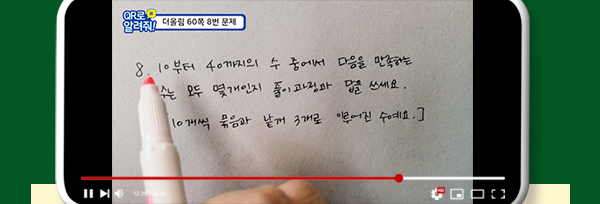 QR로
알려줘!
더올림 60쪽 8번 문제
8. 10부터 40까지의 수 중에서 다음을 만족하는
수는 모두 몇개인지 풀이과정과 답을 쓰세요.
10개씩 묶음과 낱개 3개로 이루어진 수예요.]
HD